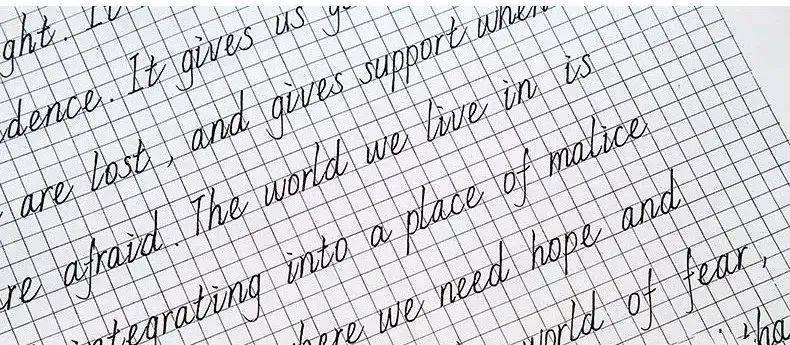 ght.
dence. It gives us
are lost, and gives support when
re afraid. The world we live in is
tegrating into a place of malice
here we need hope and
world of fear,
tha